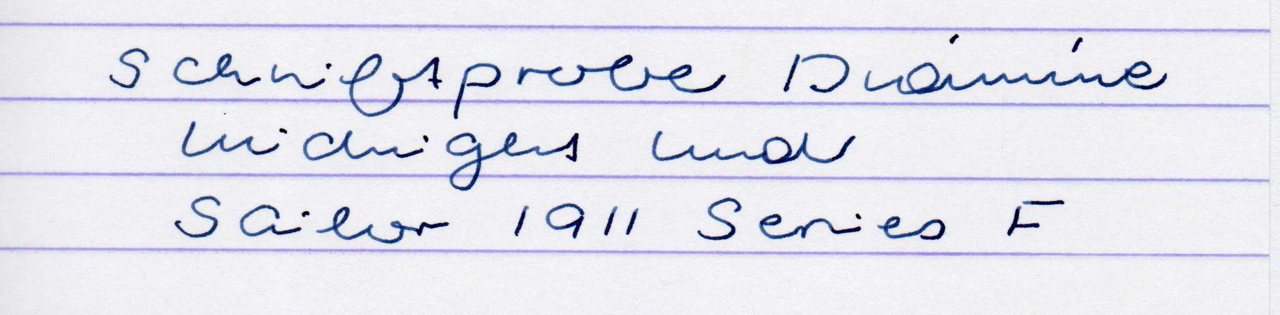 Schriftprobe Diamine
Midnight und
Sailor 1911 Series F